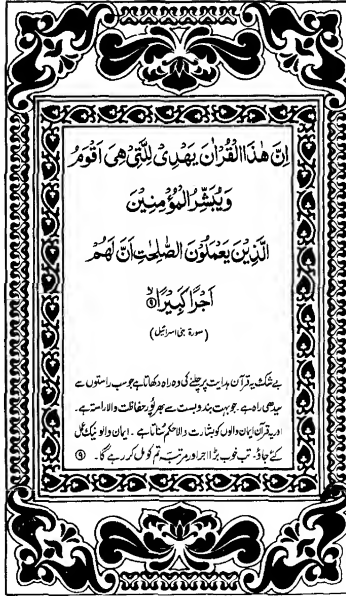 اِنَّ هٰذَا الْقُرْاٰنَ يَهْدِىْ لِلَّتِىْ هِىَ اَقْوَمُ
وَيُبَشِّرُ الْمُؤْمِنِيْنَ
الَّذِيْنَ يَعْمَلُوْنَ الصّٰلِحٰتِ اَنَّ لَهُمْ
اَجْرًا كَبِيْرًا ۙ۹
(سورۃ بنی اسرائیل)
بے شک یہ قرآن ہدایت پر چلنے کی وہ راہ دکھاتا ہے جو سب راستوں سے
سیدھی راہ ہے۔ جو بہت بندوبست سے بھرپور حفاظت والا راستہ ہے۔
اور یہ قرآن ایمان والوں کو بشارت والا حکم سُناتا ہے۔ ایمان والو نیک عمل
کئے جاؤ۔ تب خوب بڑا اجر اور مرتب تم کو مل کر رہے گا۔ ۹